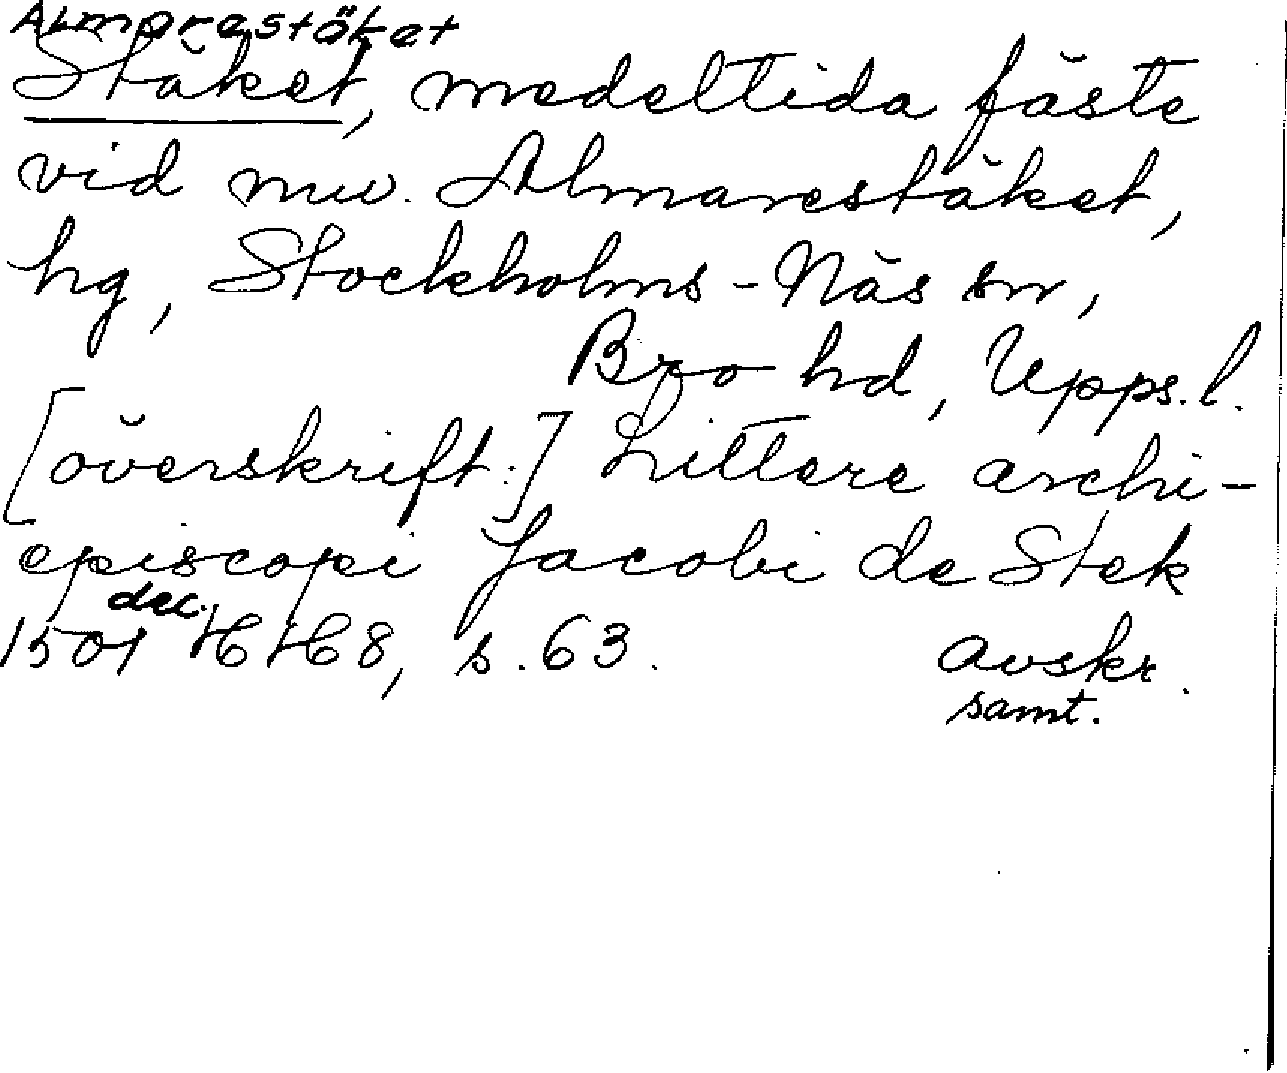 Almarestäket
Stäket, medeltida fäste
vid nuv. Almarestäket,
hg, Stockholms-Näs sn,
Bro hd, Upps. l.
[överskrift:] Littere archi-
episcopi Jacobi de Stek
dec.
1501 HH 8, s. 63. avskr.
samt.